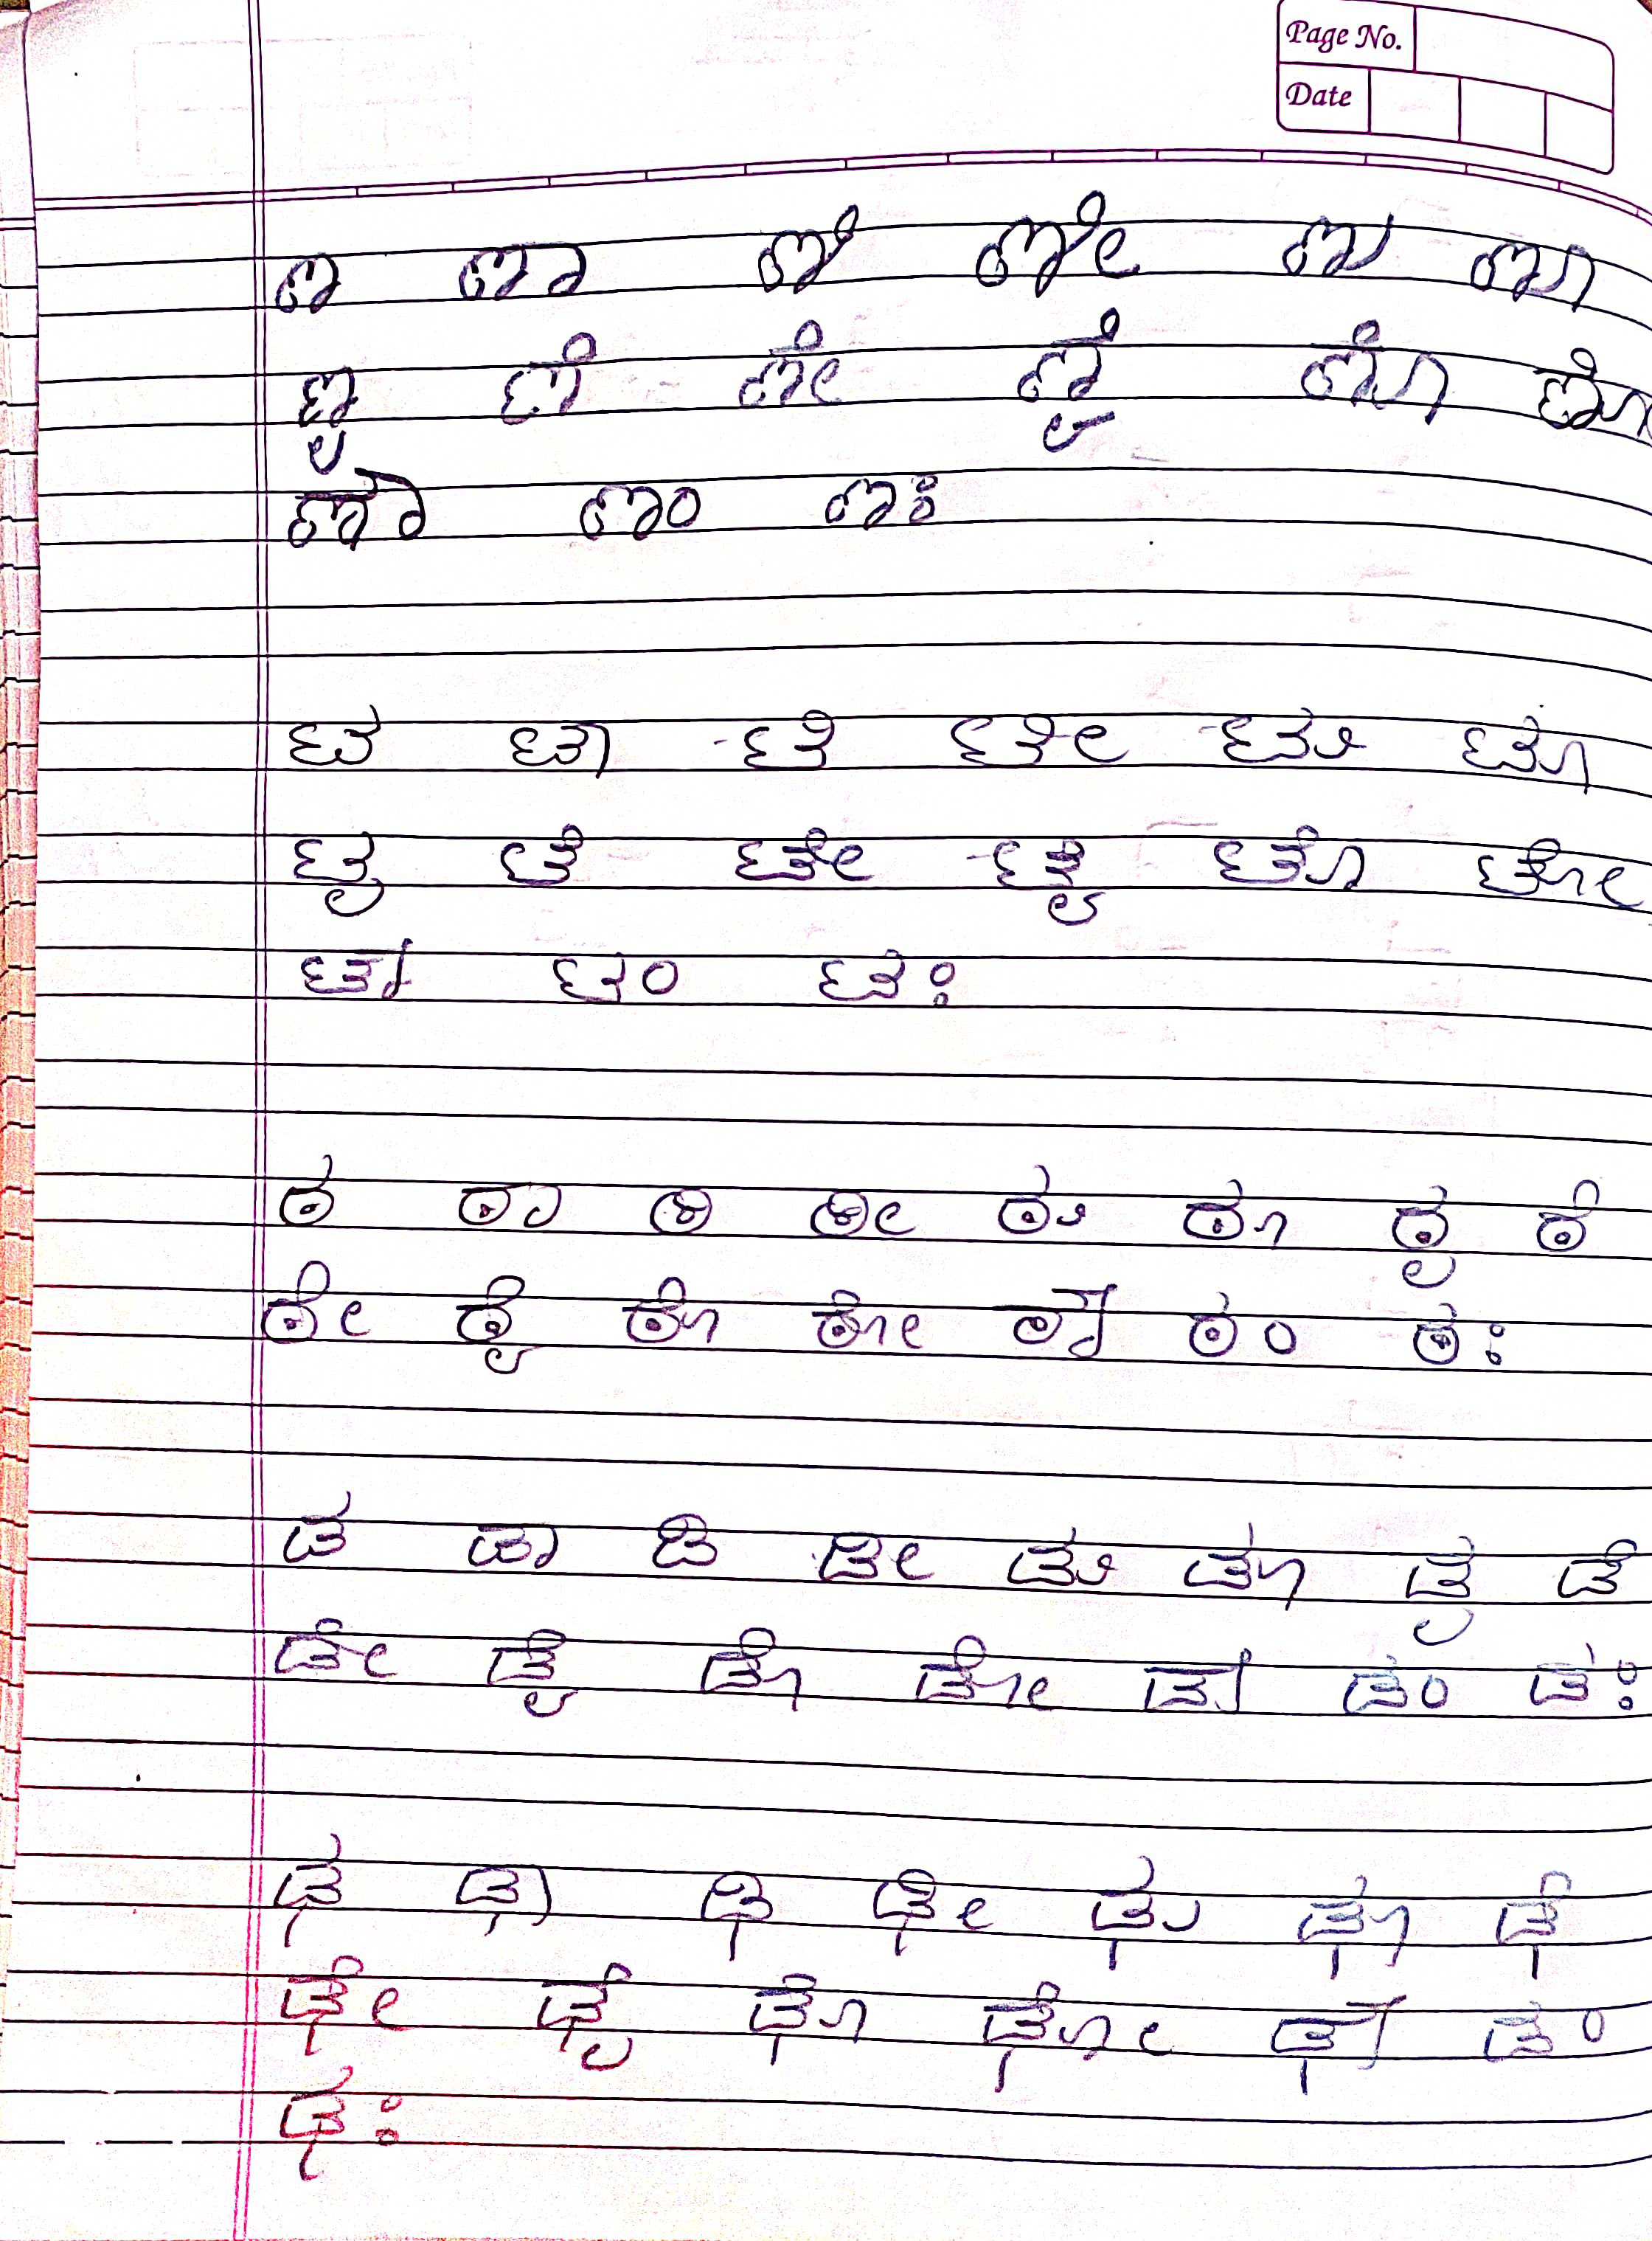 Page No.
Date
ಞ ಞಾ ಞಿ ಞೀ ಞು ಞೂ
ಞೃ ಞೆ ಞೇ ಞೈ ಞೊ ಞೋ
ಞೌ ಞಂ ಞಃ
ಟ ಟಾ ಟಿ ಟೀ ಟು ಟೂ
ಟೃ ಟೆ ಟೇ ಟೈ ಟೊ ಟೋ
ಟೌ ಟಂ ಟಃ
ಠ ಠಾ ಠಿ ಠೀ ಠು ಠೂ ಠೃ ಠೆ
ಠೇ ಠೈ ಠೊ ಠೋ ಠೌ ಠಂ ಠಃ
ಡ ಡಾ ಡಿ ಡೀ ಡು ಡೂ ಡೃ ಡೆ
ಡೇ ಡೈ ಡೊ ಡೋ ಡೌ ಡಂ ಡಃ
ಢ ಢಾ ಢಿ ಢೀ ಢು ಢೂ ಢೆ
ಢೇ ಢೈ ಢೊ ಢೋ ಢೌ ಡಂ
ಢಃ